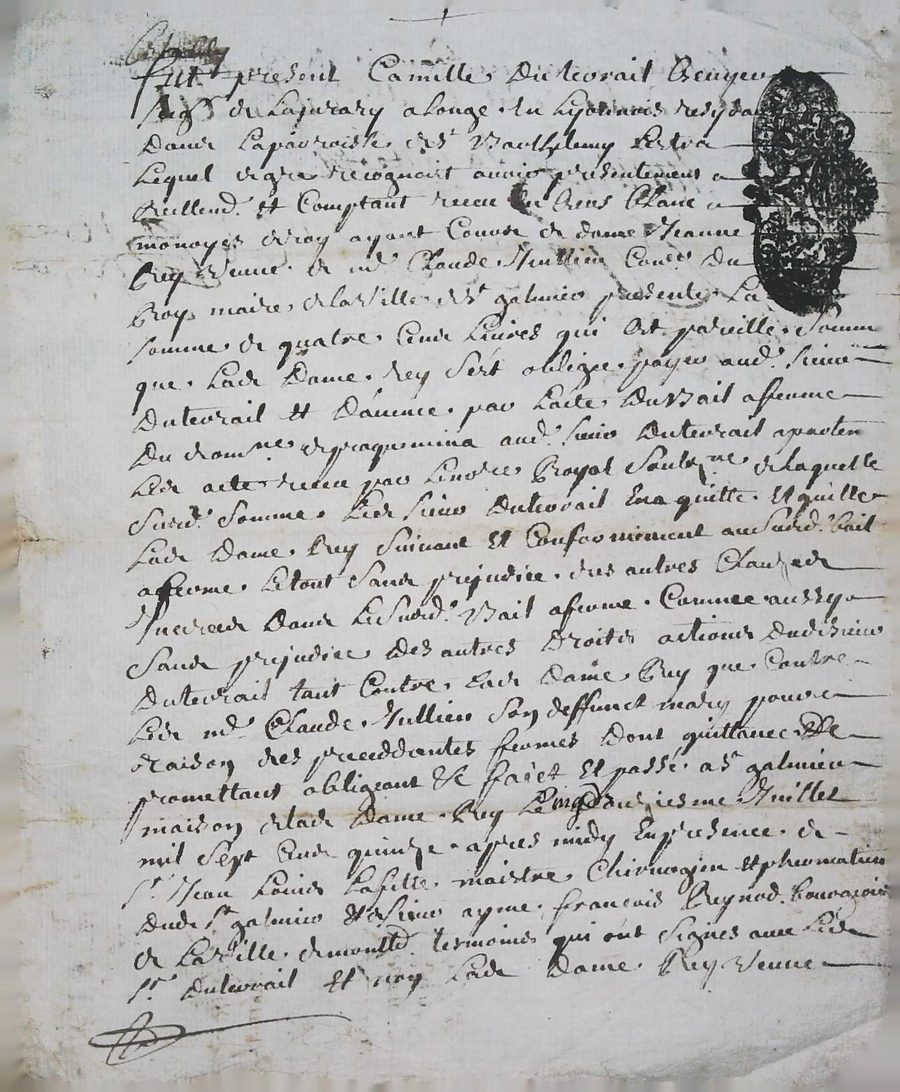 Fut present Camille Duteurail Escuyer
Seigr de Lajurary a Longe en Lyonnois resydant
Dans La parroisse de st Barthelemy Lestra
Lequel de gré recognoist avoir presentement
Reellemt et Comptant receu en bons
monoyes de roy ayant Cours de dame Jeanne
Rey veuve de mr Claude Jullien Coner Du
Roy maire de la Ville de st galmier presente La
somme de quatre Cens Livres qui est pareille Somme
que Lade Dame Rey s'est obligée payer aud. sieur
Duteurail et D'avance par L'acte Du Bail a ferme
Du domne de aud. sieur Duteurail apartent
Led acte receu par Le nore Royal Soubzne de laquelle
Susd. Somme Led sieur Duteurail En a quitté et quitte
Lade Dame Rey Suivant et Conformement au Susd. bail
a ferme Le tout Sans prejudice des autres Clauses
Incerées Dans Le Susd. Bail a ferme Comme aussy
Sans prejudice Des autres Droits actions Dudit sieur
Duteurail tant Contre Lade Dame Rey que Contre
Led mr Claude Jullien Son deffunct mary pour
raison des precedantes fermes Dont quittance &c
promettant obligeant &c faict et passé a st galmier
maison de lade Dame Rey Le Juillet
mil Sept Cens quinze apres midy En presence de
sr Jean Louis Lafitte maistre Chirurgien et
Dud st galmier et sieur ayme françois Reynod bourgeois
de La Ville de temoins qui ont Signés avec Led
sr Duteurail et non Lade Dame Rey Veuve